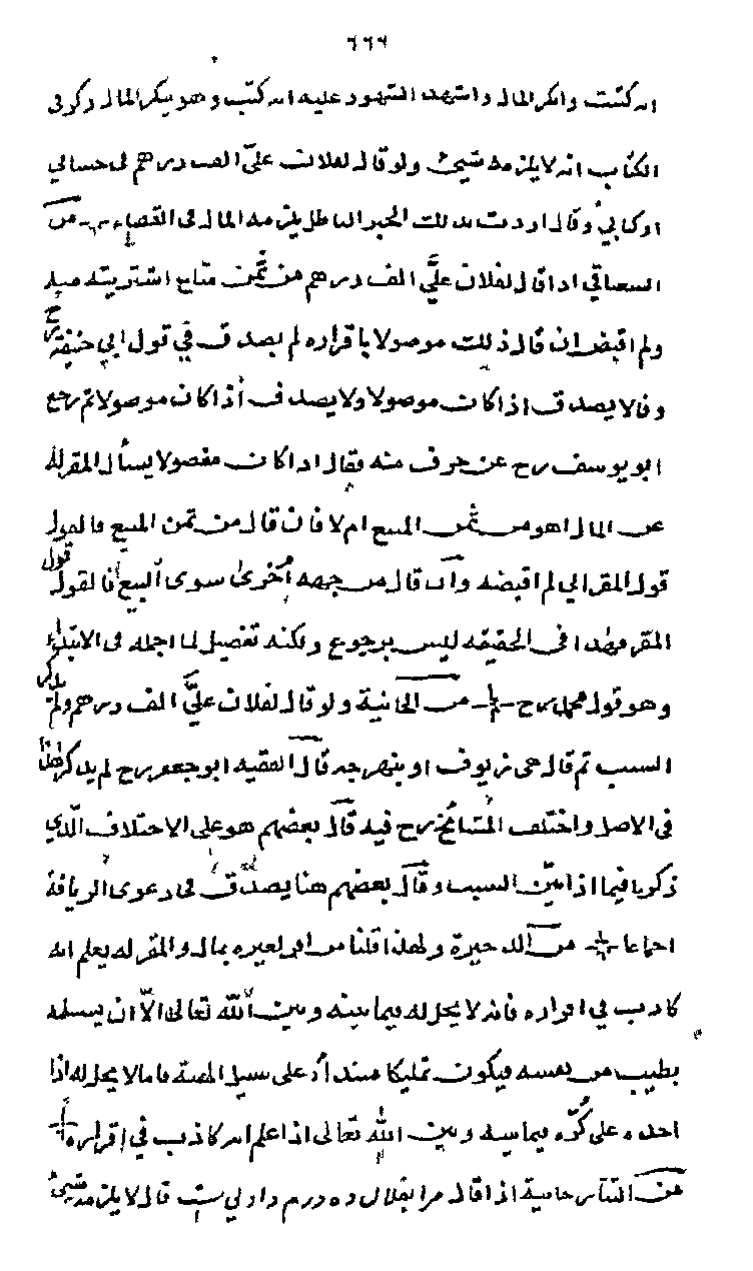 ٦٦٩
انه كتبت وانكر المال واشهد الشهود عليه انه كتب وهو ينكر المال وذكر فى
الكتاب انه لا يلزمه شيئ ولو قال لفلان علىّ الف درهم فى حسابي
او كتابي وقال اردت بذلك الخبر الباطل يلزمه المال فى القضاء من
السغناقي اذا قال لفلان علىّ الف درهم من ثمن متاع اشتريته منه
ولم اقبض ان قال ذلك موصولا باقراره لم يصدق في قول ابي حنيفة رح
وقالا يصدق اذا كان موصولا ولا يصدق اذا كان موصولا ثم رجع
ابو يوسف رح عن حرف منه فقال اذا كان مفصولا يسأل المقر له
عن المال اهو من ثمن المبيع ام لا فان قال من ثمن المبيع فالقول
قول المقر اني لم اقبضه وان قال من جهه اخرى سوى البيع فالقول قول
المقر وهذا فى الحقيقه ليس برجوع ولكنه تفصيل لما اجمله فى الابتداء
وهو قول محمد رح من الخانية ولو قال لفلان علىّ الف درهم ولم يذكر
السبب ثم قال هى زيوف او بنهرجه قال الفقيه ابو جعفر رح لم يذكر هذا
فى الاصل واختلف المشائخ رح فيه قال بعضهم هو على الاختلاف الّذي
ذكرنا فيما اذا بيّن السبب وقال بعضهم هنا يصدق فى دعوى الزيافة
اجماعا من الذخيرة ولهذا قلنا من اقر لغيره بمال والمقر له يعلم انه
كاذب في اقراره فانه لا يحل له فيما بينه وبين الله تعالى الّا ان يسلمه
بطيب من نفسه فيكون تمليكا مبتدأ على سبيل الهبة فاما لا يحل له اذا
اخذه على كُرْه فيما بينه وبين الله تعالى اذا علم انه كاذب في اقراره
من التتارخانية اذا قال مرا بفلان ده درم داد ني ست قال لا يلزمه شيئ